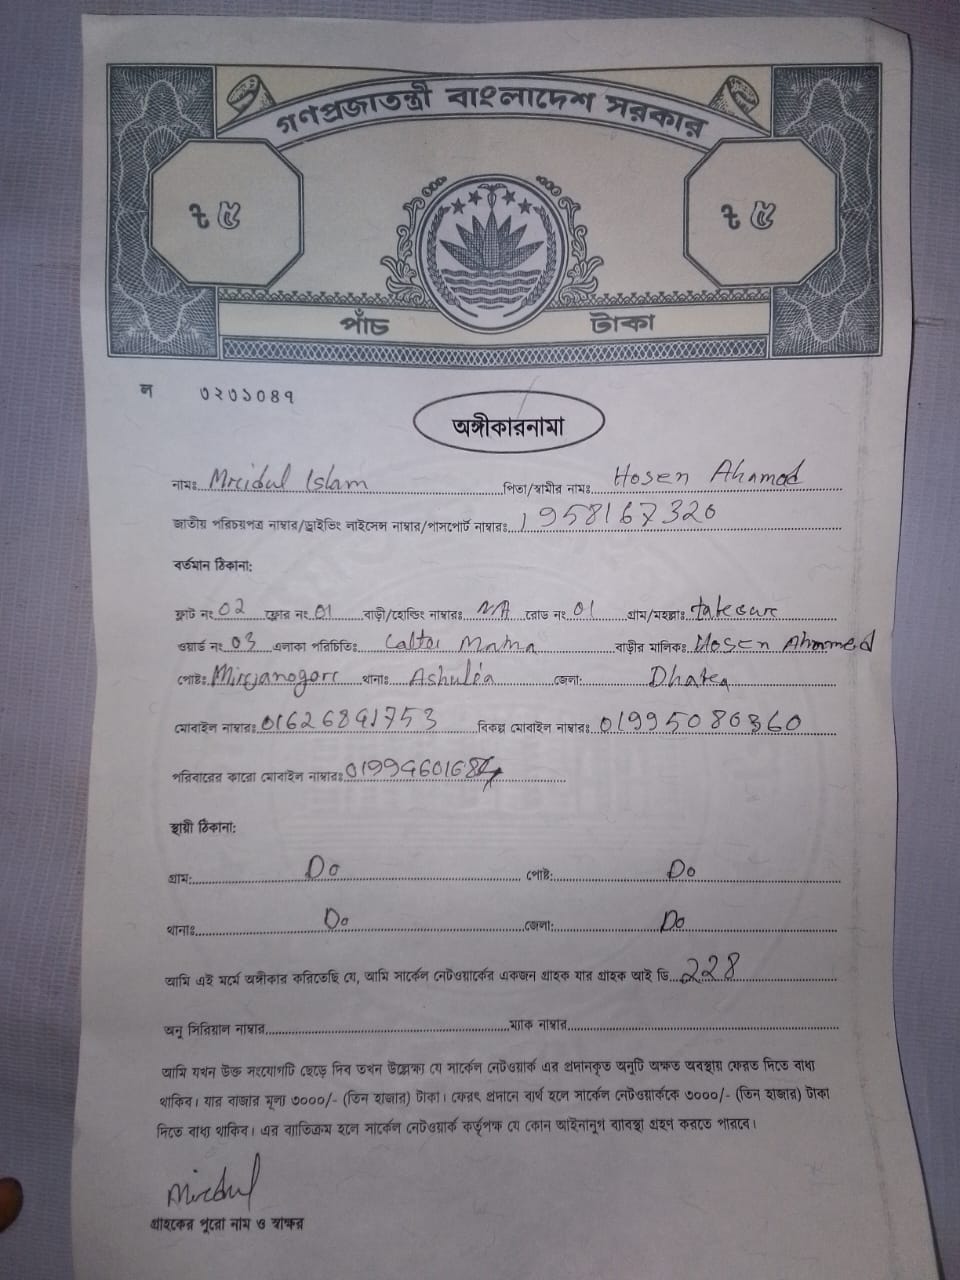 গণপ্রজাতন্ত্রী বাংলাদেশ সরকার
৳ ৫ ৳ ৫
পাঁচ টাকা
ল ৩২৩১০৪৭
অঙ্গীকারনামা
নামঃ Mridul Islam পিতা/স্বামীর নামঃ Hosen Ahamed
জাতীয় পরিচয়পত্র নাম্বার/ড্রাইভিং লাইসেন্স নাম্বার/পাসপোর্ট নাম্বারঃ 1958167320
বর্তমান ঠিকানা:
ফ্লাট নং 02 ফ্লোর নং 01 বাড়ী/হোল্ডিং নাম্বারঃ NA রোড নং 01 গ্রাম/মহল্লাঃ
ওয়ার্ড নং 03 এলাকা পরিচিতিঃ বাড়ীর মালিকঃ Hosen Ahammed
পোষ্টঃ Mirjanogor থানাঃ Ashulia জেলা: Dhaka
মোবাইল নাম্বারঃ 01626891753 বিকল্প মোবাইল নাম্বারঃ 01995080360
পরিবারের কারো মোবাইল নাম্বারঃ
স্থায়ী ঠিকানা:
গ্রাম: Do পোষ্ট: Do
থানাঃ Do জেলা: Do
আমি এই মর্মে অঙ্গীকার করিতেছি যে, আমি সার্কেল নেটওয়ার্কের একজন গ্রাহক যার গ্রাহক আই ডি 228
অনু সিরিয়াল নাম্বার ম্যাক নাম্বার
আমি যখন উক্ত সংযোগটি ছেড়ে দিব তখন উল্লেক্ষ্য যে সার্কেল নেটওয়ার্ক এর প্রদানকৃত অনুটি অক্ষত অবস্থায় ফেরত দিতে বাধ্য
থাকিব। যার বাজার মূল্য ৩০০০/- (তিন হাজার) টাকা। ফেরৎ প্রদানে ব্যর্থ হলে সার্কেল নেটওয়ার্ককে ৩০০০/- (তিন হাজার) টাকা
দিতে বাধ্য থাকিব। এর ব্যাতিক্রম হলে সার্কেল নেটওয়ার্ক কর্তৃপক্ষ যে কোন আইনানুগ ব্যাবস্থা গ্রহণ করতে পারবে।
Mridul
গ্রাহকের পুরো নাম ও স্বাক্ষর